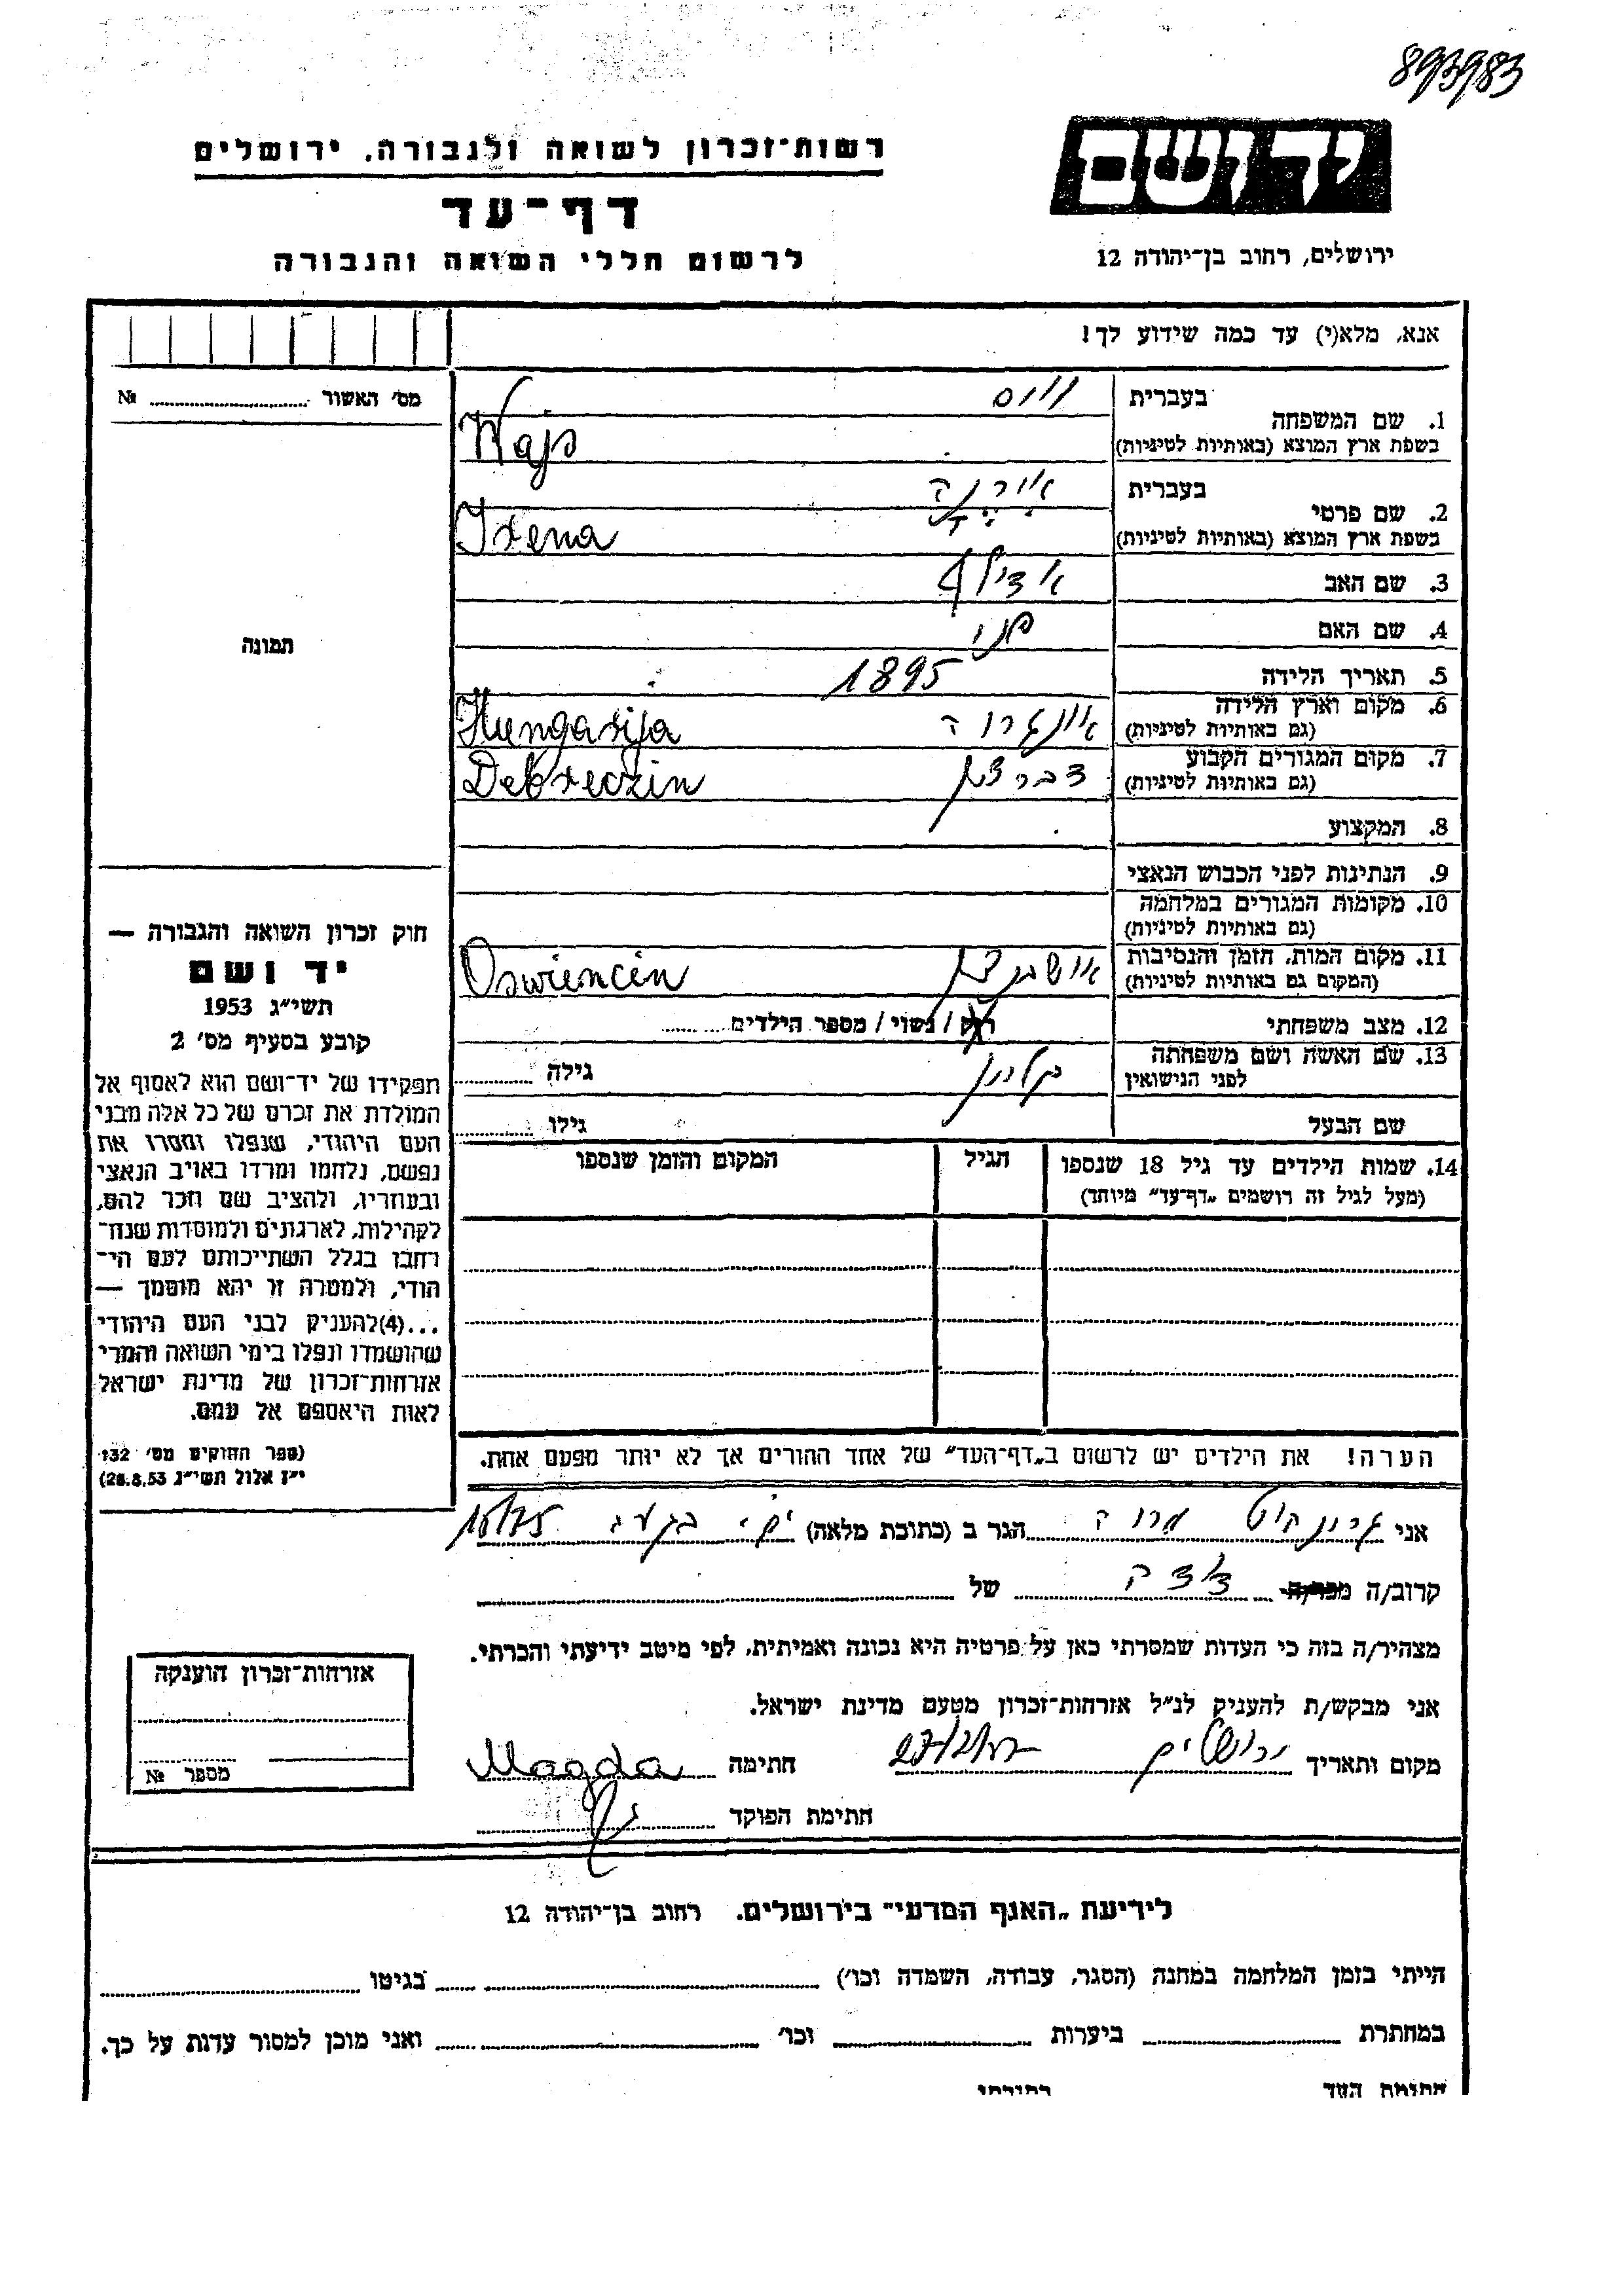 893983
רשות־זכרון לשואה ולגבורה, ירושלים
יד ושם
דף־עד
לרשום חללי השואה והגבורה
ירושלים, רחוב בן־יהודה 12
אנא, מלא(י) עד כמה שידוע לך!
מס' האשור № 
1. שם המשפחה
בעברית
וויס
בשפת ארץ המוצא (באותיות לטיניות)
Wajs
2. שם פרטי
בעברית
אירנה
בשפת ארץ המוצא (באותיות לטיניות)
Irena
3. שם האב אדולף
4. שם האם פני
5. תאריך הלידה 1895
6. מקום וארץ הלידה
(גם באותיות לטיניות)
Hungarija
7. מקום המגורים הקבוע
(גם באותיות לטיניות)
דברצין Debreczin
8. המקצוע
9. הנתינות לפני הכבוש הנאצי
10. מקומות המגורים במלחמה
(גם באותיות לטיניות)
11. מקום המות, הזמן והנסיבות
(המקום גם באותיות לטיניות)
Oswiencin
12. מצב משפחתי רוק / נשוי / מספר הילדים
13. שם האשה ושם משפחתה
לפני הנישואין
גילה
שם הבעל גילו
14. שמות הילדים עד גיל 18 שנספו הגיל המקום והזמן שנספו
(מעל לגיל זה רושמים „דף־עד" מיוחד)
הערה! את הילדים יש לרשום ב„דף־העד" של אחד ההורים אך לא יותר מפעם אחת.
תמונה
חוק זכרון השואה והגבורה —
יד ושם
תשי"ג 1953
קובע בסעיף מס' 2
תפקידו של יד־ושם הוא לאסוף אל
המולדת את זכרם של כל אלה מבני
העם היהודי, שנפלו ומסרו את
נפשם, נלחמו ומרדו באויב הנאצי
ובעוזריו, ולהציב שם וזכר להם,
לקהילות, לארגונים ולמוסדות שנח־
רבו בגלל השתייכותם לעם הי־
הודי, ולמטרה זו יהא מוסמך —
...(4)להעניק לבני העם היהודי
שהושמדו ונפלו בימי השואה והמרי
אזרחות־זכרון של מדינת ישראל
לאות היאספם אל עמם.
(ספר החוקים מס' 132
י"ז אלול תשי"ג 28.8.53)
אני הגר ב (כתובת מלאה)
קרוב/ה מכר/ה דודה של
מצהיר/ה בזה כי העדות שמסרתי כאן על פרטיה היא נכונה ואמיתית, לפי מיטב ידיעתי והכרתי.
אני מבקש/ת להעניק לנ"ל אזרחות־זכרון מטעם מדינת ישראל.
מקום ותאריך ירושלים חתימה Magda
חתימת הפוקד
אזרחות־זכרון הוענקה
מספר №
לידיעת „האגף המדעי" בירושלים. רחוב בן־יהודה 12
הייתי בזמן המלחמה במחנה (הסגר, עבודה, השמדה וכו') בגיטו
במחתרת ביערות וכו' ואני מוכן למסור עדות על כך.
חתימת העד